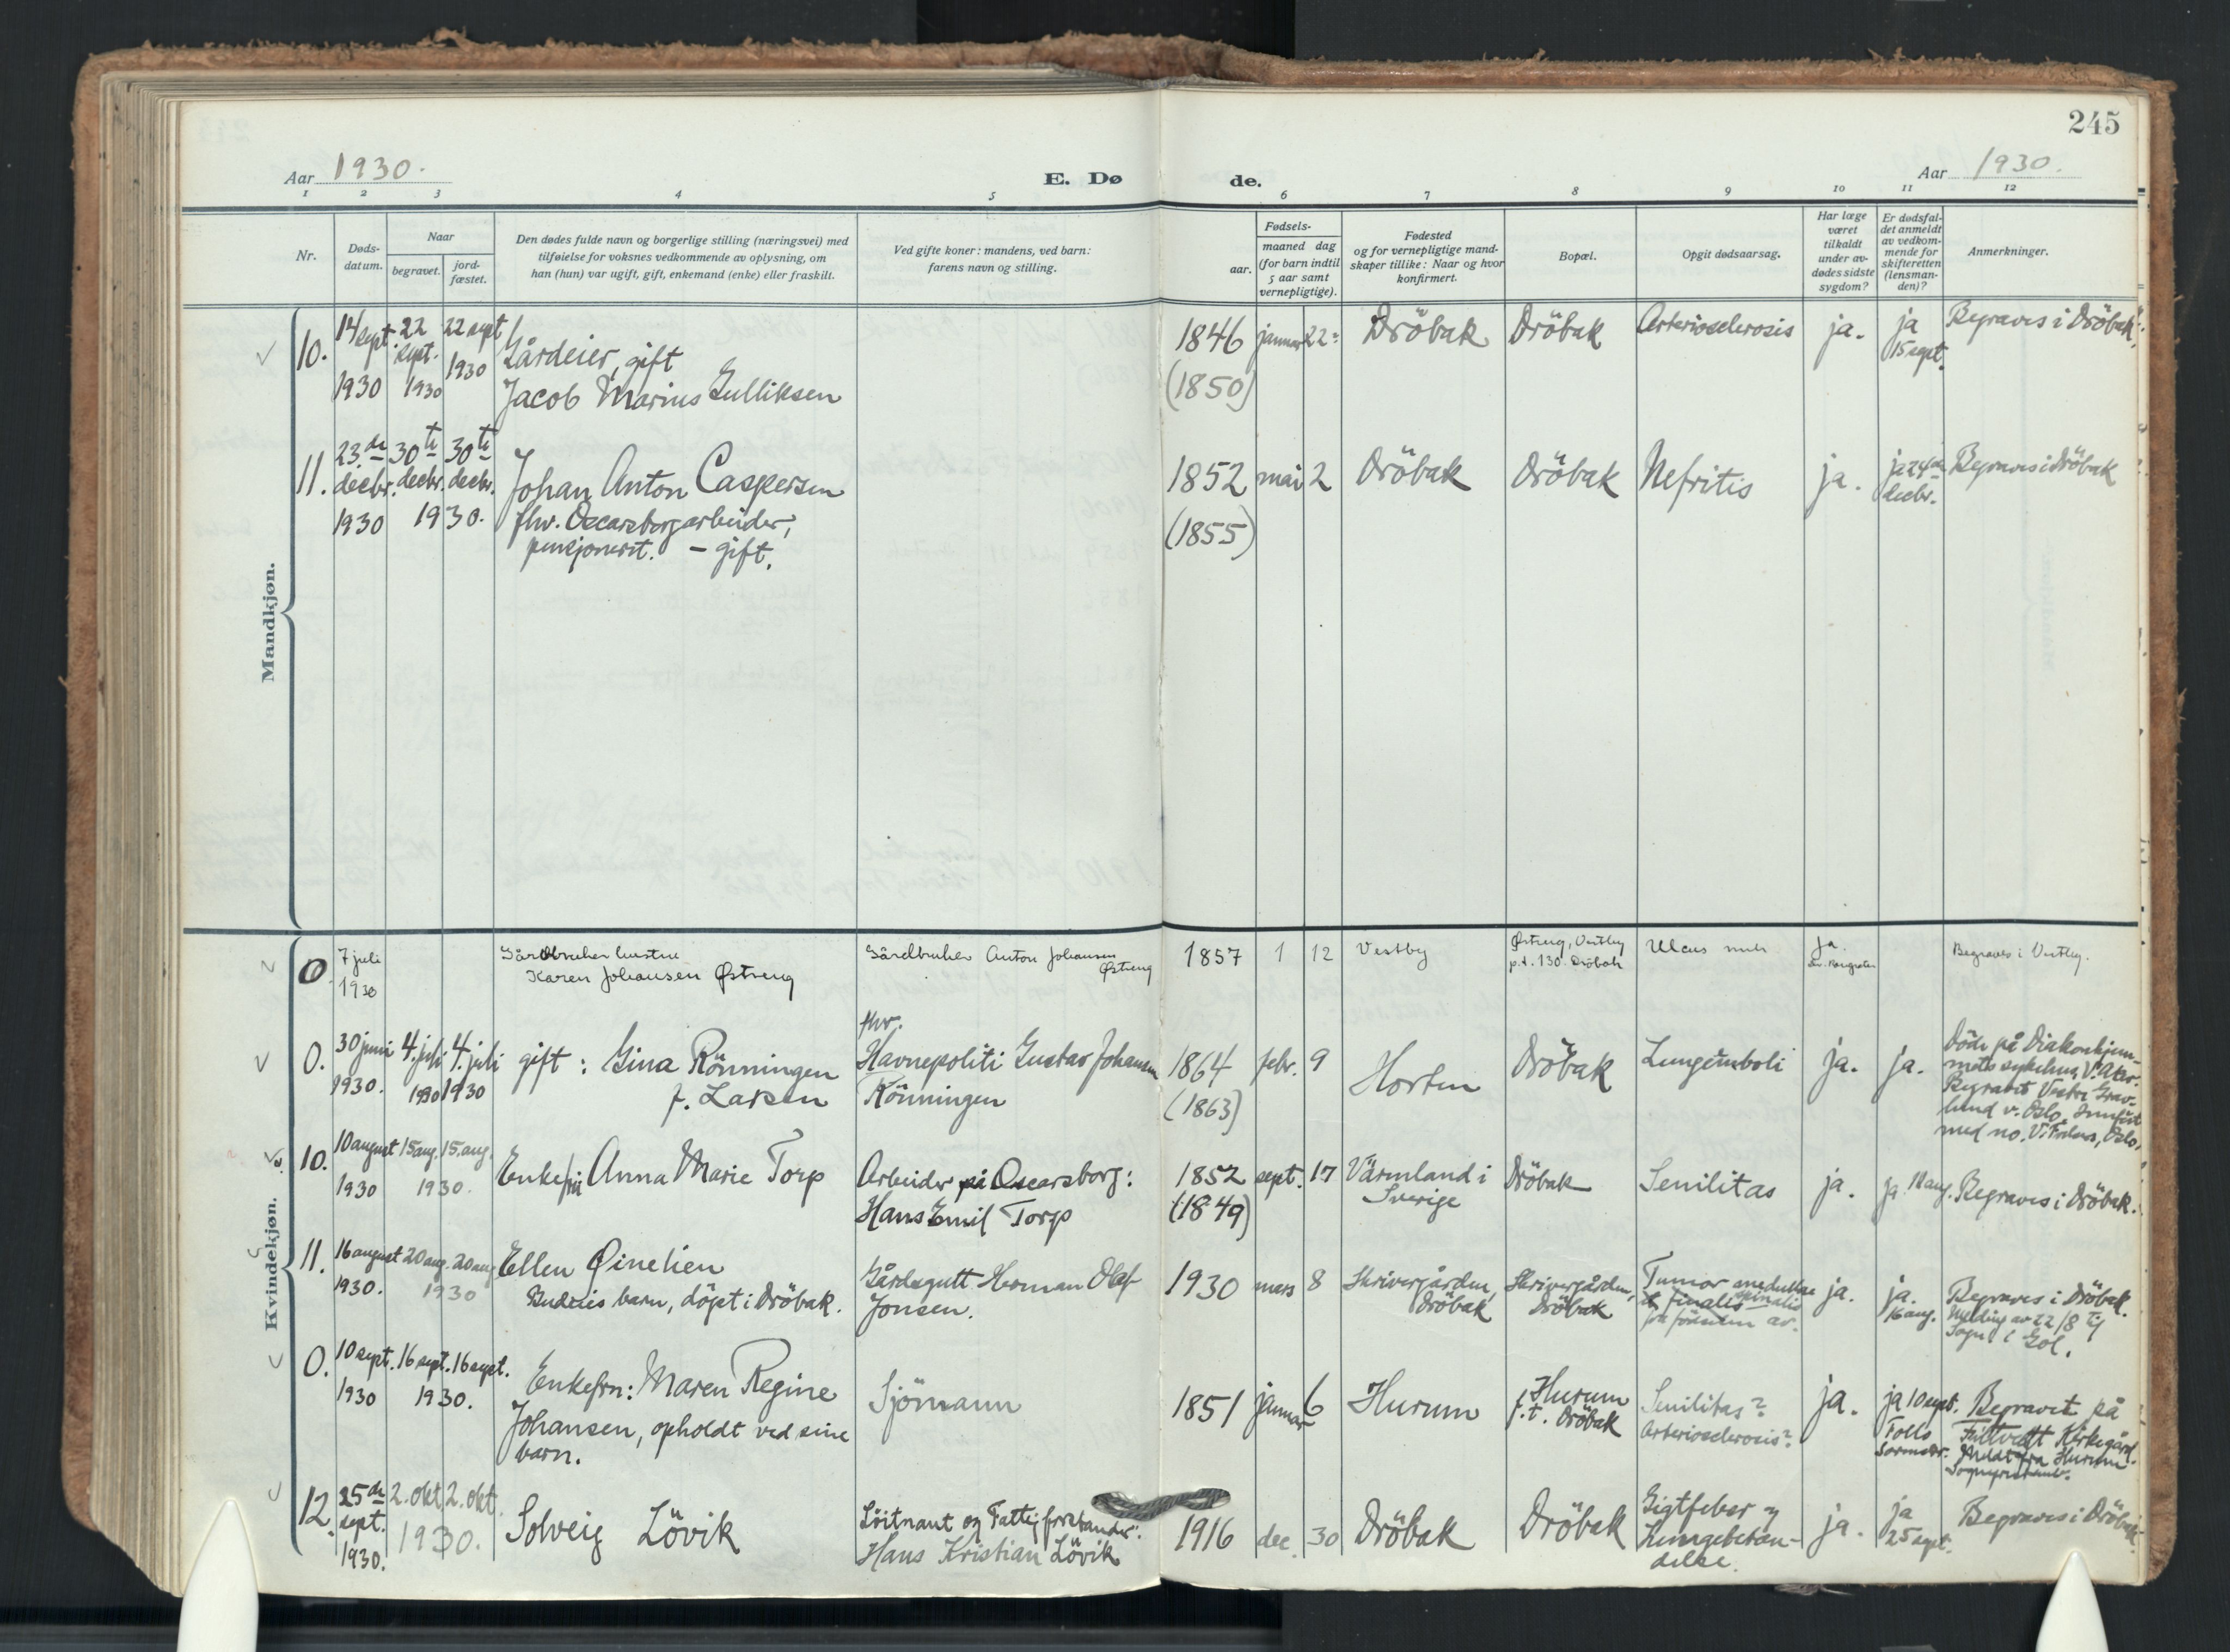 245
Aar 1930.
E. Dø
de.
Aar 1930.
1 2 3 4 5 6 7 8 9 10 11 12
Nr.
Døds-
datum.
Naar
begravet.
jord-
fæstet.
Den dødes fulde navn og borgerlige stilling (næringsvei) med
tilføielse for voksnes vedkommende av oplysning, om
han (hun) var ugift, gift, enkemand (enke) eller fraskilt.
Ved gifte koner: mandens, ved barn:
farens navn og stilling.
Fødsels-
aar.
maaned dag
(for barn indtil
5 aar samt
vernepligtige).
Fødested
og for vernepligtige mand-
skaper tillike: Naar og hvor
konfirmert.
Bopæl.
Opgit dødsaarsag.
Har læge
været
tilkaldt
under av-
dødes sidste
sygdom?
Er dødsfal-
det anmeldt
av vedkom-
mende for
skifteretten
(lensman-
den)?
Anmerkninger.
Mandkjøn.
10.
14 sept.
1930
22
sept.
1930
22 sept
1930
Gårdeier, gift
Jacob Marius Gulliksen
1846
(1850)
januar 22
Dröbak
Dröbak
Arteriosclerosis
ja.
ja
15 sept.
Begraves i Dröbak.
11.
23de
decbr.
1930
30te
decbr.
30te
decbr.
1930.
Johan Anton Caspersen
fhv. Oscarsborgarbeider,
pensjonert. – gift.
1852
(1855)
mai 2
Dröbak
Dröbak
Nefritis
ja.
ja 24de
decbr.
Begraves i Dröbak
Kvindekjøn.
0.
7 juli
1930
Gårdbruker hustru
Karen Johansen Østreng
Gårdbruker Anton Johansen
Østreng
1857
1 12
Vestby
Østreng, Vestby
p.t. 130 Dröbak
Ulcus
ja.
Begraves i Vestby.
0.
30 juni
1930.
4. juli
1930
4. juli
1930
gift: Gina Rönningen
f. Larsen
fhv.
Havnepoliti Gustav Johansen
Rönningen
1864
(1863)
febr. 9
Horten
Dröbak
Lungeemboli
ja.
ja.
Döde på Diakonhjem-
mets sykehus, V. Aker.
Begravet Vestre Grav-
lund v. Oslo. Innfört
med no. V. Frelsers, Oslo.
10.
10 august
1930
15 aug.
15. aug.
1930.
Enkefru Anna Marie Torp
Arbeider på Oscarsborg:
Hans Emil Torp
1852
(1849)
sept. 17
Värmland i
Sverige
Dröbak
Senilitas
ja.
ja. 11 aug.
Begraves i Dröbak.
11.
16 august
1930.
20 aug.
20 aug
1930
Ellen Qinelien
barn, döpt i Dröbak.
Gårdsgutt Herman Olaf
Jonsen.
1930
mars 8
Skrivergården,
Dröbak
Skrivergården,
Dröbak
Tumor medullae
spinalis
ja.
ja.
16 aug.
Begraves i Dröbak.
Melding av 22/8 til
Sogn i Gol.
0.
10 sept.
1930
16 sept.
16 sept.
1930.
Enkefru: Maren Regine
Johansen, opholdt ved sine
barn.
Sjömann
1851
januar 6
Hurum
Hurum
p.t. Dröbak
Senilitas?
Arteriosclerosis?
ja.
ja 10 sept.
Follo
Sorenskr.
Begravet på
Filtvedt Kirkegård.
Meldt fra Hurum
12.
25de
sept.
1930.
2. okt
2. okt.
1930.
Solveig Lövik
Löitnant og Fattigforstander:
Hans Kristian Lövik
1916
dec. 30
Dröbak
Dröbak
Gigtfeber og
Lungebetæn-
delse.
ja.
ja
25 sept.
Begraves i Dröbak.